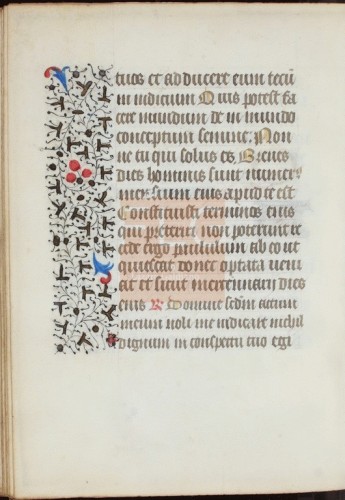 tuos et adducere eum tecū
in iudicium Quis potest fa
cere mundum de inmundo
conceptum semine. Non
ne tu qui solus es. Breues
dies hominis sunt numerꝰ
mensium eius apud te est
Constituisti terminos eius
qui preteriri non poterunt re
cede ergo paululum ab eo ut
quiescat donec optata veni
at et sicut mercennarii dies
eius R Domine secundum actum
meum noli me iudicare nichil
dignum in conspectu tuo egi